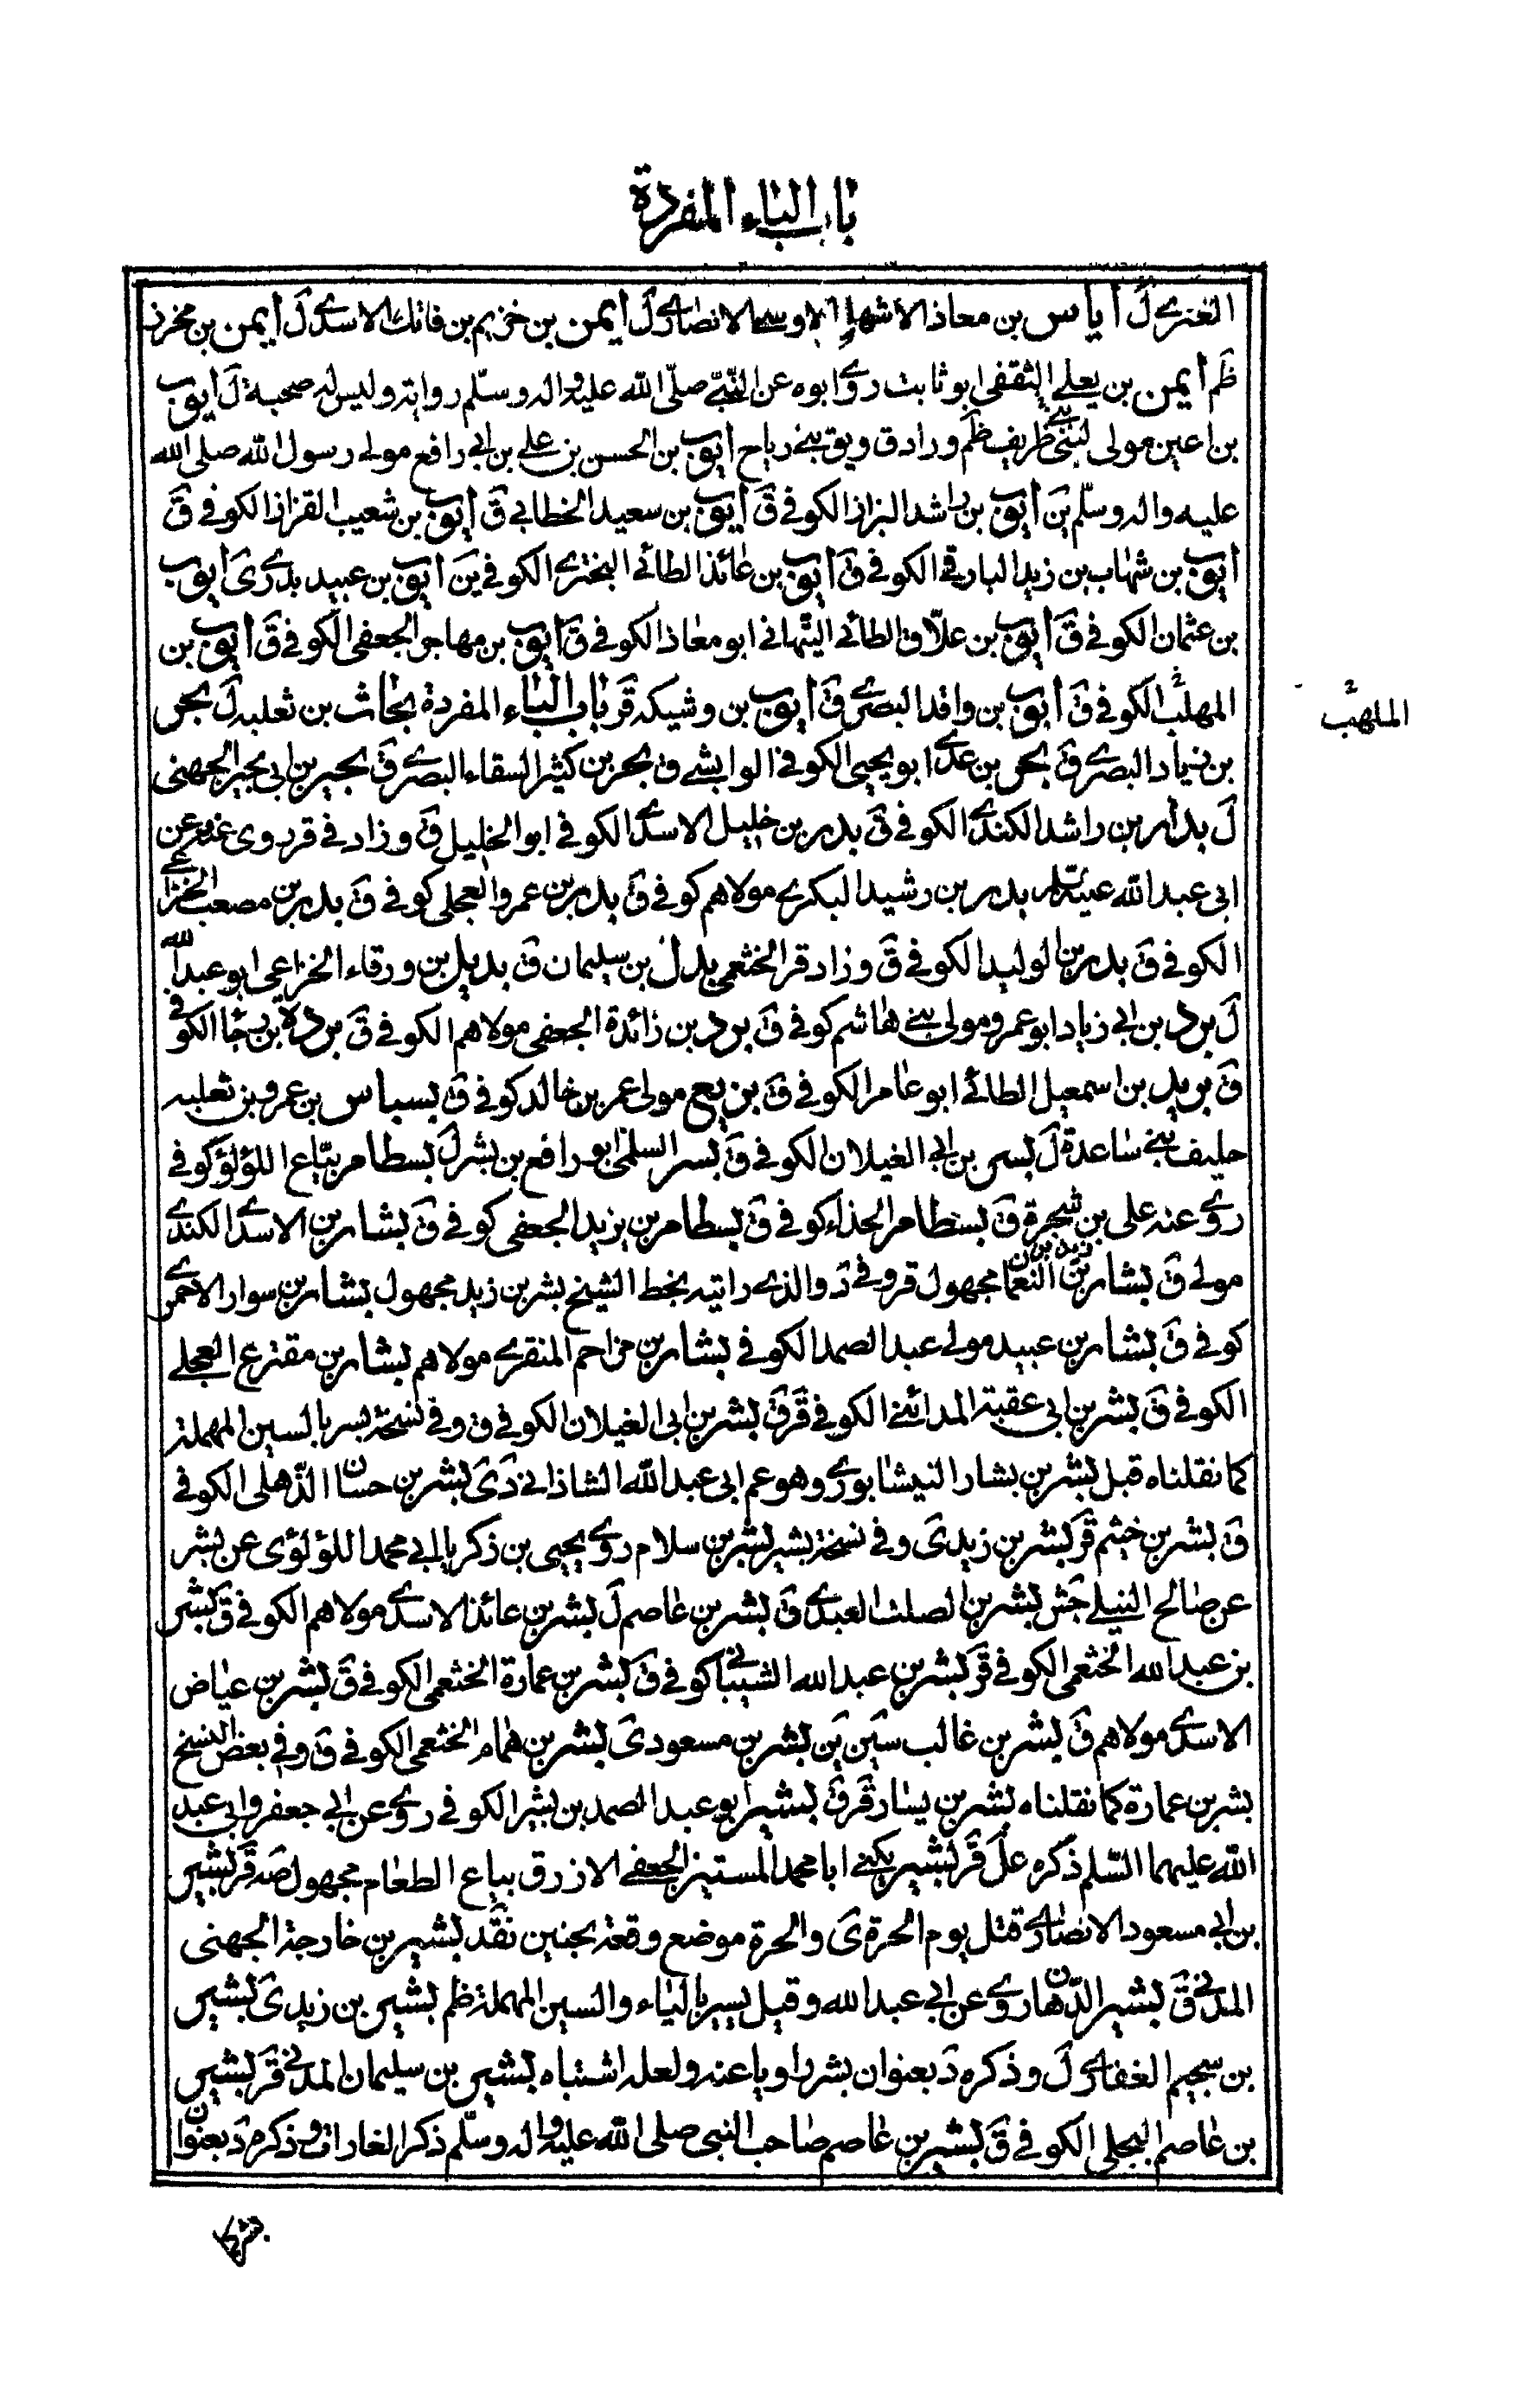 باب الباء المفردة
العنزی ل أیاس بن معاذ الاشهلی الاوسی الانصاری ل أیمن بن خزیم بن فاتك الاسدی ل أیمن بن محرز
ظم أیمن بن یعلی الثقفی ابو ثابت روی ابوه عن النّبیّ صلّی الله علیه واله وسلّم روایته ولیس له صحبة ل أیوب
بن اعین مولی لبنی طریف ظم وزاد ق ویق بنی ریاح أیوب بن الحسن بن علی بن ابی رافع مولی رسول الله صلی الله
علیه واله وسلّم ین أیوب بن راشد البزاز الکوفی ق أیوب بن سعید الخطابی ق أیوب بن شعیب القزاز الکوفی ق
أیوب بن شهاب بن زید البارقی الکوفی ق أیوب بن عائذ الطائی البختری الکوفی ین أیوب بن عبید بدری ی أیوب
بن عثمان الکوفی ق أیوب بن علاق الطائی النبهانی ابو معاذ الکوفی ق أیوب بن مهاجر الجعفی الکوفی ق أیوب بن
المهلب الکوفی ق أیوب بن واقد البصری ق أیوب بن وشیکه قر باب الباء المفردة بحاث بن ثعلبه ل بحر
الملهب
بن زیاد البصری ق بحر بن عدی ابو یحیی الکوفی الوابشی ق بحر بن کثیر السقاء البصری ق بحیر بن ابی بحیر الجهنی
ل بدر بن راشد الکندی الکوفی ق بدر بن خلیل الاسدی الکوفی ابو الخلیل ق وزاد فی قر روی عنه وعن
ابی عبد الله علیه السلام بدر بن رشید البکری مولاهم کوفی ق بدر بن عمرو العجلی کوفی ق بدر بن مصعب الخزاعی
الکوفی ق بدر بن الولید الکوفی ق وزاد قر الخثعمی بدل بن سلیمان ق بدیل بن ورقاء الخزاعی ابو عبد الله
ل برد بن ابی زیاد ابو عمرو مولی بنی هاشم کوفی ق برد بن زائدة الجعفی مولاهم الکوفی ق بردة بن رجا الکوفی
ق برید بن اسمعیل الطائی ابو عامر الکوفی ق بزیع مولی عمر بن خالد کوفی ق بسباس بن عمرو بن ثعلبه
حلیف بنی ساعدة ل بسر بن ابی الغیلان الکوفی ق بسر السلمی ابو رافع بن بشر ل بسطام بیّاع اللؤلؤ کوفی
روی عنه علی بن شجرة ق بسطام الحذاء کوفی ق بسطام بن یزید الجعفی کوفی ق بشار بن الاسدی الکندی
مولی ق بشار بن زید بن النعمان مجهول قر وفی د والذی رایته بخط الشیخ بشر بن زید مجهول بشار بن سوار الاحمری
کوفی ق بشار بن عبید مولی عبد الصمد الکوفی بشار بن مزاحم المنقری مولاهم بشار بن مقترع العجلی
الکوفی ق بشر بن ابی عقبة المدائنی الکوفی قر ق بشر بن ابی الغیلان الکوفی ق وفی نسخة بسر بالسین المهملة
کما نقلناه قبل بشر بن بشار النیشابوری وهو عم ابی عبد الله الشاذانی دی بشر بن حسان الذّهلی الکوفی
ق بشر بن خیثم قر بشر بن زید ی وفی نسخة بشیر بشر بن سلام روی یحیی بن زکریا ابی محمد اللؤلؤی عن بشر
عن صالح النیلی جش بشر بن الصلت العبدی ق بشر بن عاصم ل بشر بن عائذ الاسدی مولاهم الکوفی ق بشر
بن عبد الله الخثعمی الکوفی قر بشر بن عبد الله الشیبانی کوفی ق بشر بن عمارة الخثعمی الکوفی ق بشر بن عیاض
الاسدی مولاهم ق بشر بن غالب سین ین بشر بن مسعود ی بشر بن همام الخثعمی الکوفی ق وفی بعض النسخ
بشر بن عمارة کما نقلناه بشر بن یسار قر ق بشیر ابو عبد الصمد بن بشیر الکوفی روی عن ابی جعفر وابی عبد
الله علیهما السّلم ذکره عل قر بشیر یکنی ابا محمد المستنیر الجعفی الازرق بیاع الطعام مجهول صه قر بشیر
بن ابی مسعود الانصاری قتل یوم الحرة ی والحرة موضع وقعة بحنین نقد بشیر بن خارجة الجهنی
المدنی ق بشیر الدّهان روی عن ابی عبد الله وقیل یسیر بالیاء والسین المهملة ظم بشیر بن زید ی بشیر
بن سحیم الغفاری ل وذکره د بعنوان بشر راویا عنه ولعله اشتباه بشیر بن سلیمان المدنی قر بشیر
بن عاصم البجلی الکوفی ق بشیر بن عاصم صاحب النبی صلی الله علیه واله وسلّم ذکر الغارات وذکره د بعنوان